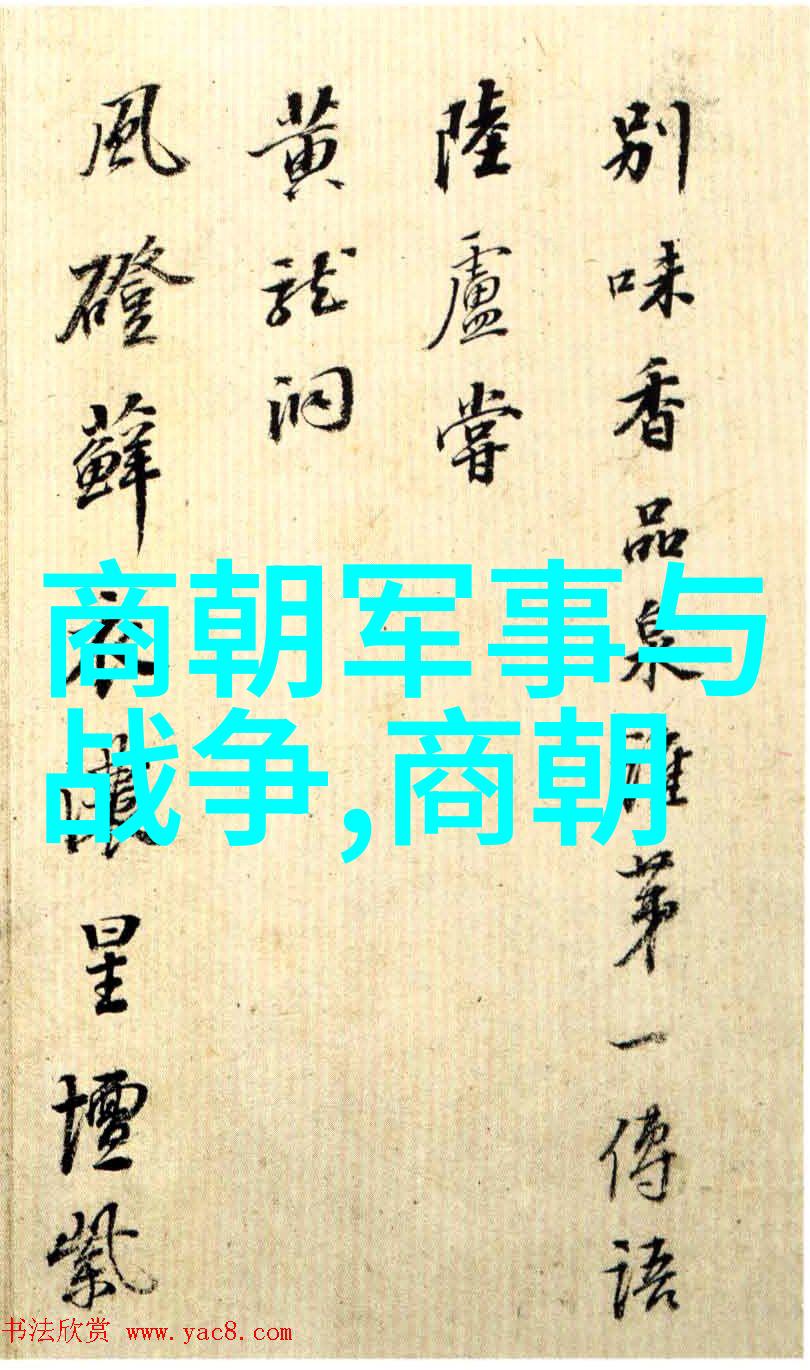 别味香品泉誰第一傳語
陸盧嘗
黄龍洞
風磴蘚衣濃星壇紫
商朝军事与
战争,商朝
书法欣赏 www.yac8.com